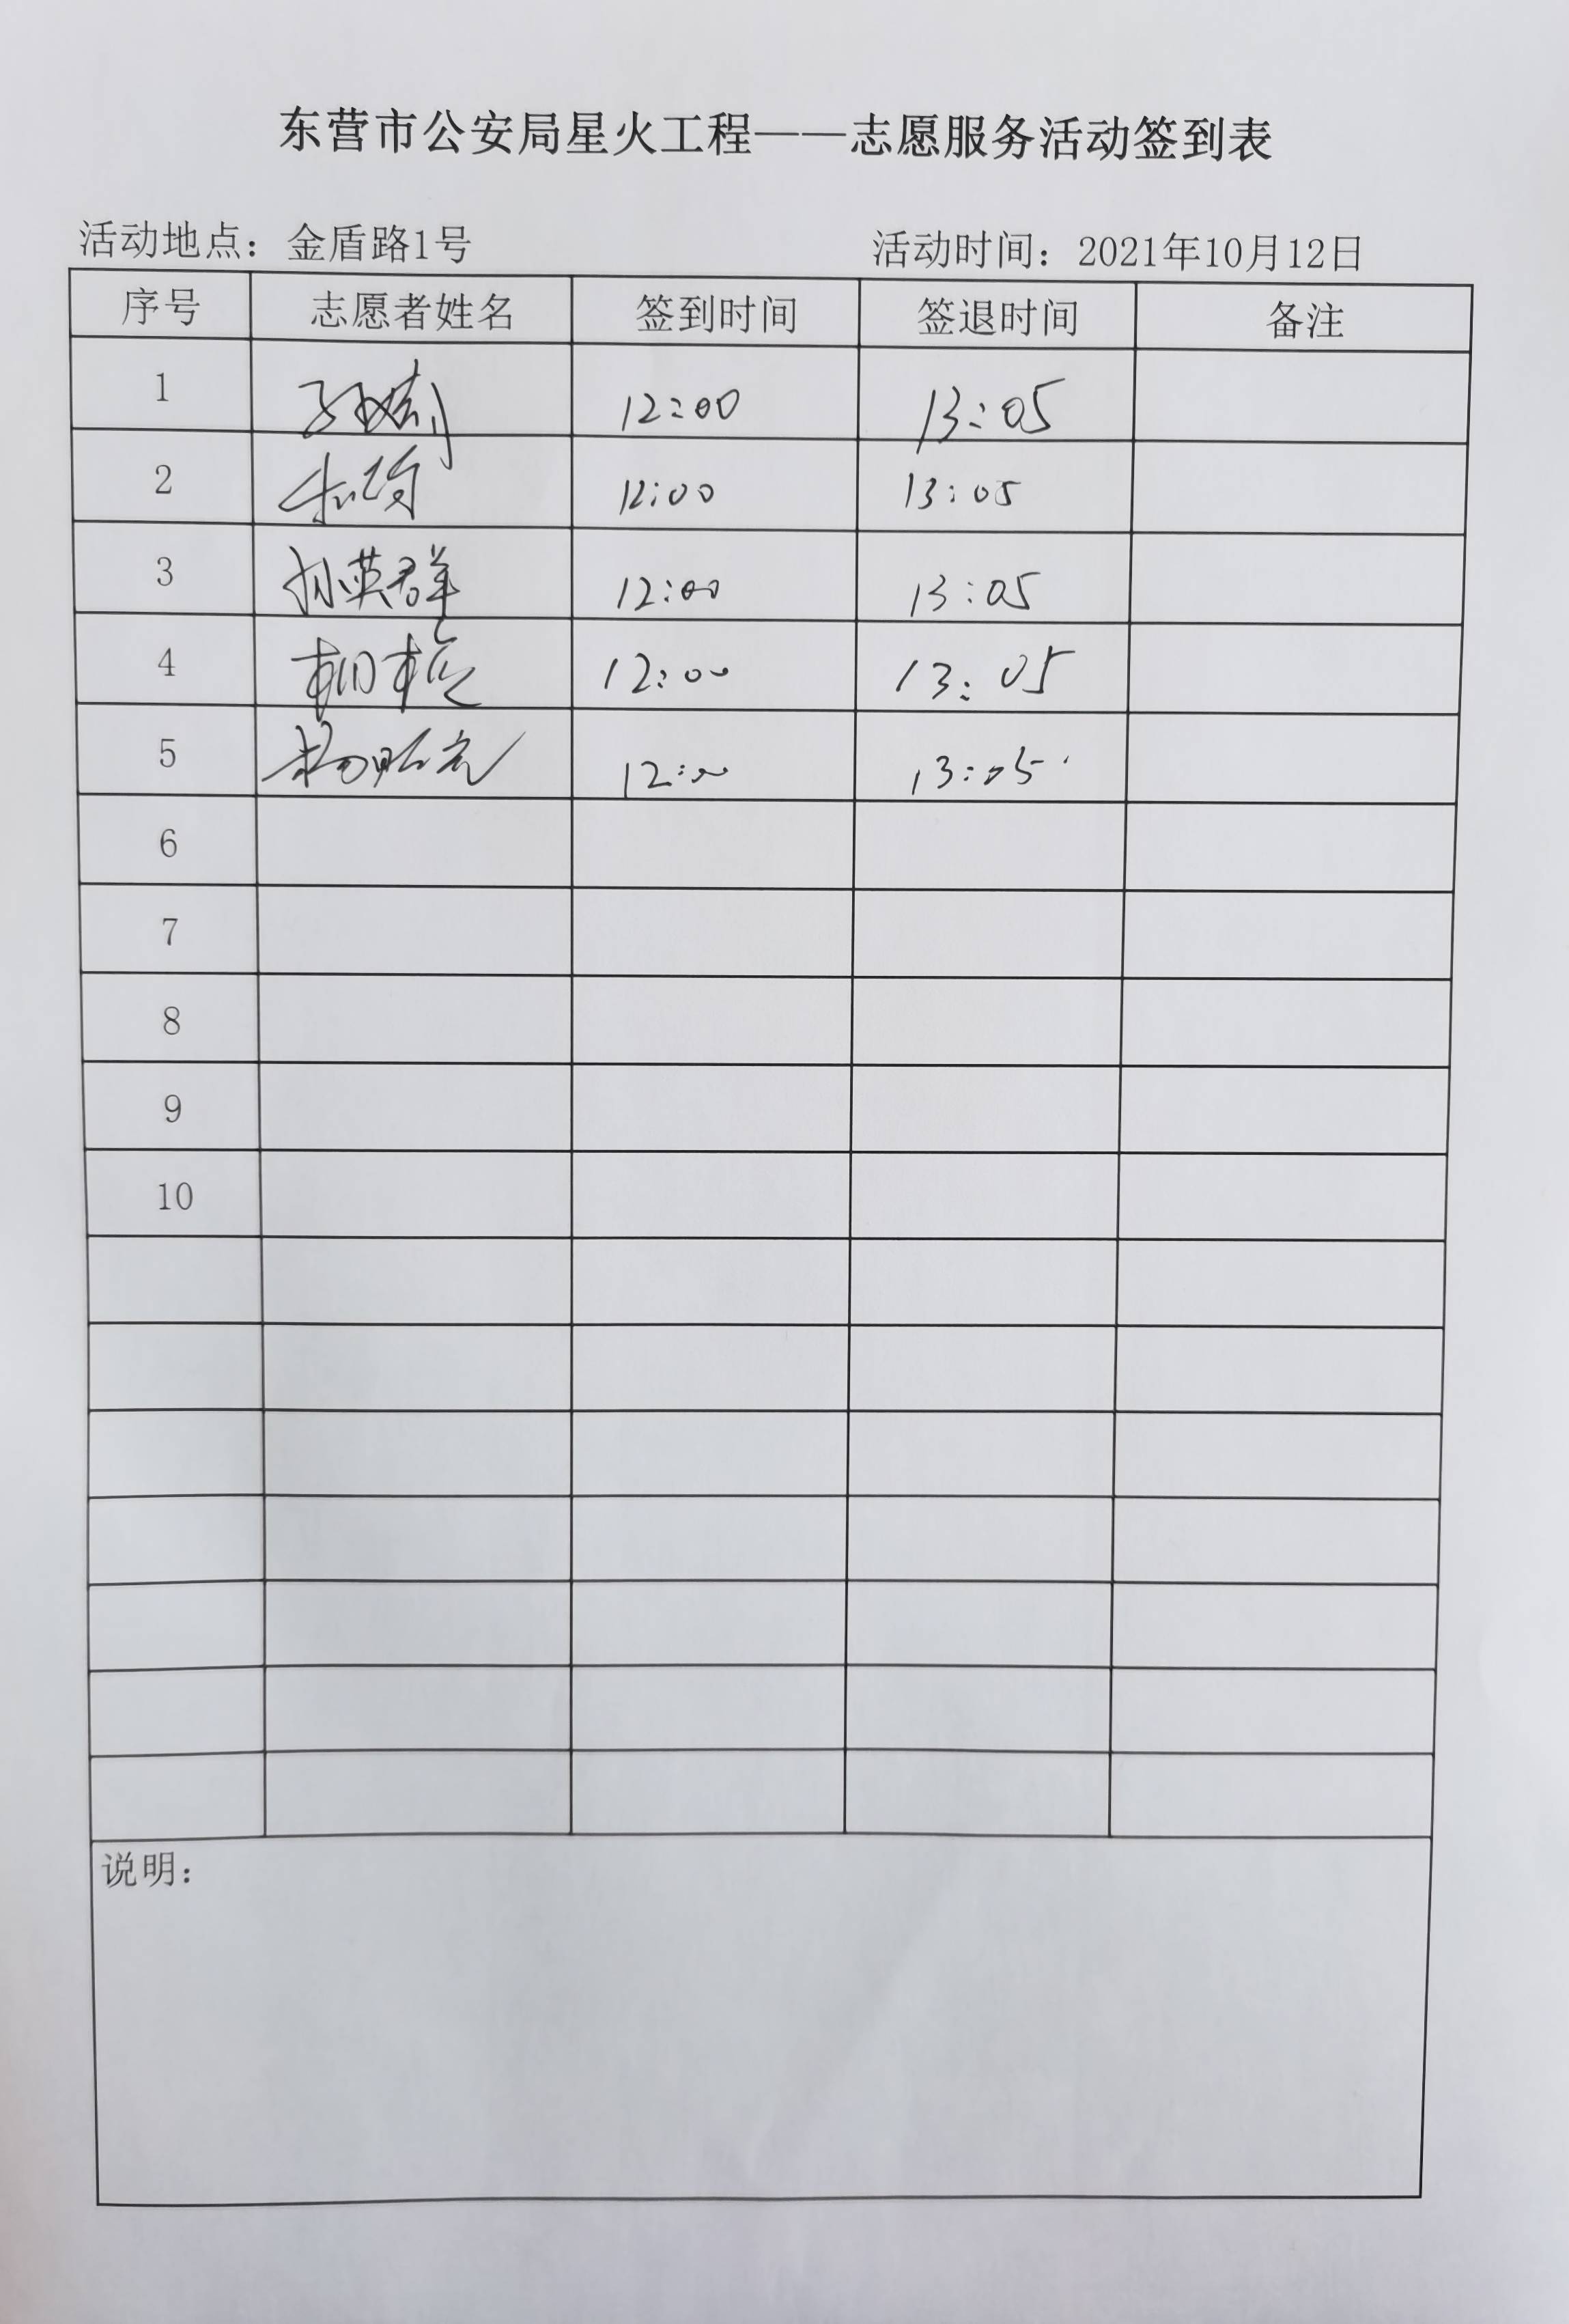 东营市公安局星火工程——志愿服务活动签到表
活动地点：金盾路1号 活动时间：2021年10月12日
序号 志愿者姓名 签到时间 签退时间 备注
1 12:00 13:05
2 12:00 13:05
3 孙英群 12:00 13:05
4 12:00 13:05
5 12:00 13:05
6
7
8
9
10
说明：